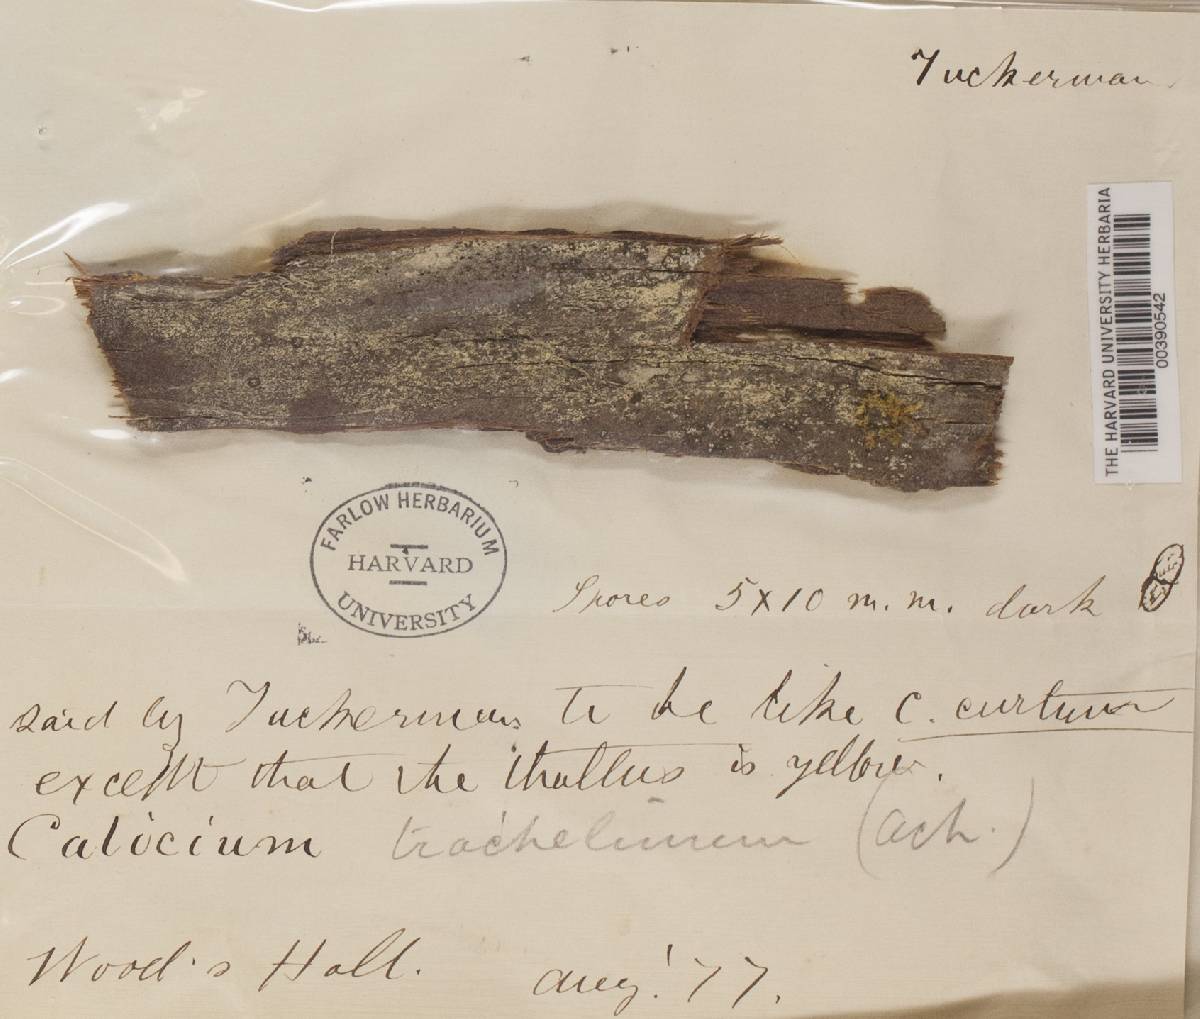 Tuckerman.
THE HARVARD UNIVERSITY HERBARIA
00390542
FARLOW HERBARIUM
HARVARD
UNIVERSITY
Spores 5x10 m.m. dark
said by Tuckerman to be like C. curtum
except that the thallus is yellow.
Calicium trachelinum (Ach.)
Wood's Holl. Aug. '77.